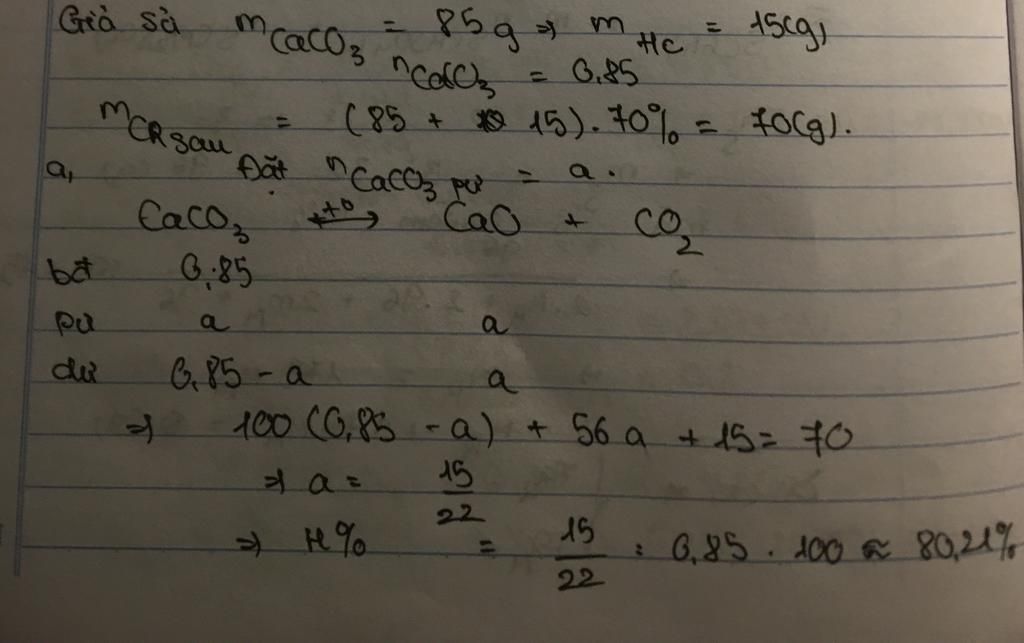 Giả sử mCaCO3 = 85g ⇒ mHC = 15(g)
nCaCO3 = 0,85
mCR sau = (85 + 15).70% = 70(g).
a, Đặt nCaCO3 pư = a.
CaCO3 ⟷ t° CaO + CO2
bđ 0,85
pư a a
dư 0,85 - a a
⇒ 100(0,85 - a) + 56a + 15 = 70
⇒ a = 15/22
⇒ H% = 15/22 : 0,85 . 100 ≈ 80,21%